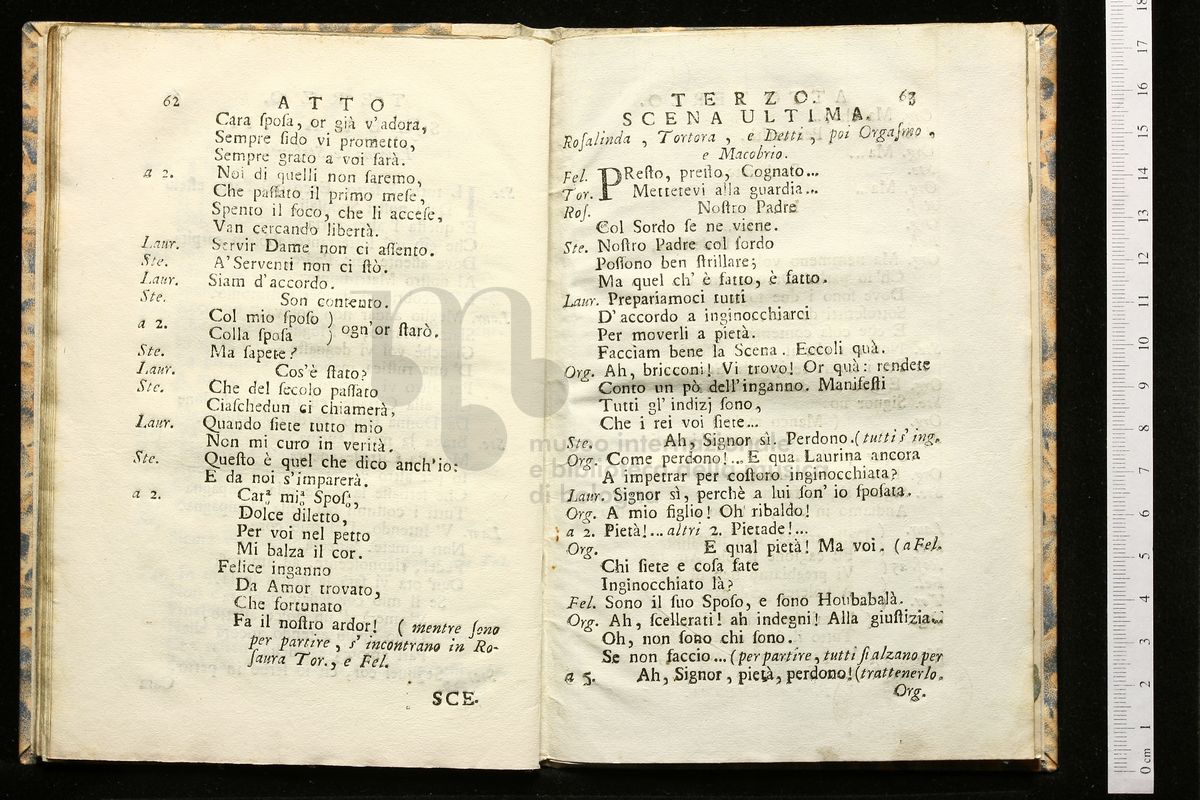 62
ATTO
Cara ſpoſa, or già v'adora,
Sempre fido vi prometto,
Sempre grato a voi ſarà.
a 2. Noi di quelli non ſaremo,
Che paſſato il primo meſe,
Spento il foco, che li acceſe,
Van cercando libertà.
Laur. Servir Dame non ci aſſento.
Ste. A' Serventi non ci ſtò.
Laur. Siam d'accordo.
Ste. Son contento.
a 2. Col mio ſpoſo )
Colla ſpoſa ) ogn'or ſtarò.
Ste. Ma ſapete?
Laur. Cos'è ſtato?
Ste. Che del ſecolo paſſato
Ciaſchedun ci chiamerà,
Laur. Quando ſiete tutto mio
Non mi curo in verità.
Ste. Queſto è quel che dico anch'io:
E da noi s'imparerà.
a 2. Carª miª Spoſº,
Dolce diletto,
Per voi nel petto
Mi balza il cor.
Felice inganno
Da Amor trovato,
Che fortunato
Fa il noſtro ardor! ( mentre ſono
per partire, s' incontrano in Ro-
ſaura Tor., e Fel.
SCE-
TERZO. 63
SCENA ULTIMA.
Roſalinda, Tortora, e Detti, poi Orgaſmo,
e Macobrio.
Fel. PReſto, preſto, Cognato...
Tor. Mettetevi alla guardia...
Roſ. Noſtro Padre
Col Sordo ſe ne viene.
Ste. Noſtro Padre col ſordo
Poſſono ben ſtrillare;
Ma quel ch' è fatto, è fatto.
Laur. Prepariamoci tutti
D'accordo a inginocchiarci
Per moverli a pietà.
Facciam bene la Scena. Eccoli quà.
Org. Ah, bricconi! Vi trovo! Or quà: rendete
Conto un pò dell'inganno. Manifeſti
Tutti gl'indizj ſono,
Che i rei voi ſiete...
Ste. Ah, Signor sì. Perdono.(tutti s' ing.
Org. Come perdono!... E qua Laurina ancora
A impetrar per coſtoro inginocchiata?
Laur. Signor sì, perchè a lui ſon' io ſpoſata.
Org. A mio figlio! Oh' ribaldo!
a 2. Pietà!... altri 2. Pietade!...
Org. E qual pietà! Ma voi. (a Fel.
Chi ſiete e coſa fate
Inginocchiato là?
Fel. Sono il ſuo Spoſo, e ſono Houbabalà.
Org. Ah, ſcellerati! ah indegni! Alla giuſtizia...
Oh, non ſono chi ſono.
Se non faccio...(per partire, tutti ſi alzano per
a 5. Ah, Signor, pietà, perdono!(trattenerlo.
Org.
museo internazionale
e biblioteca della musica
di bologna